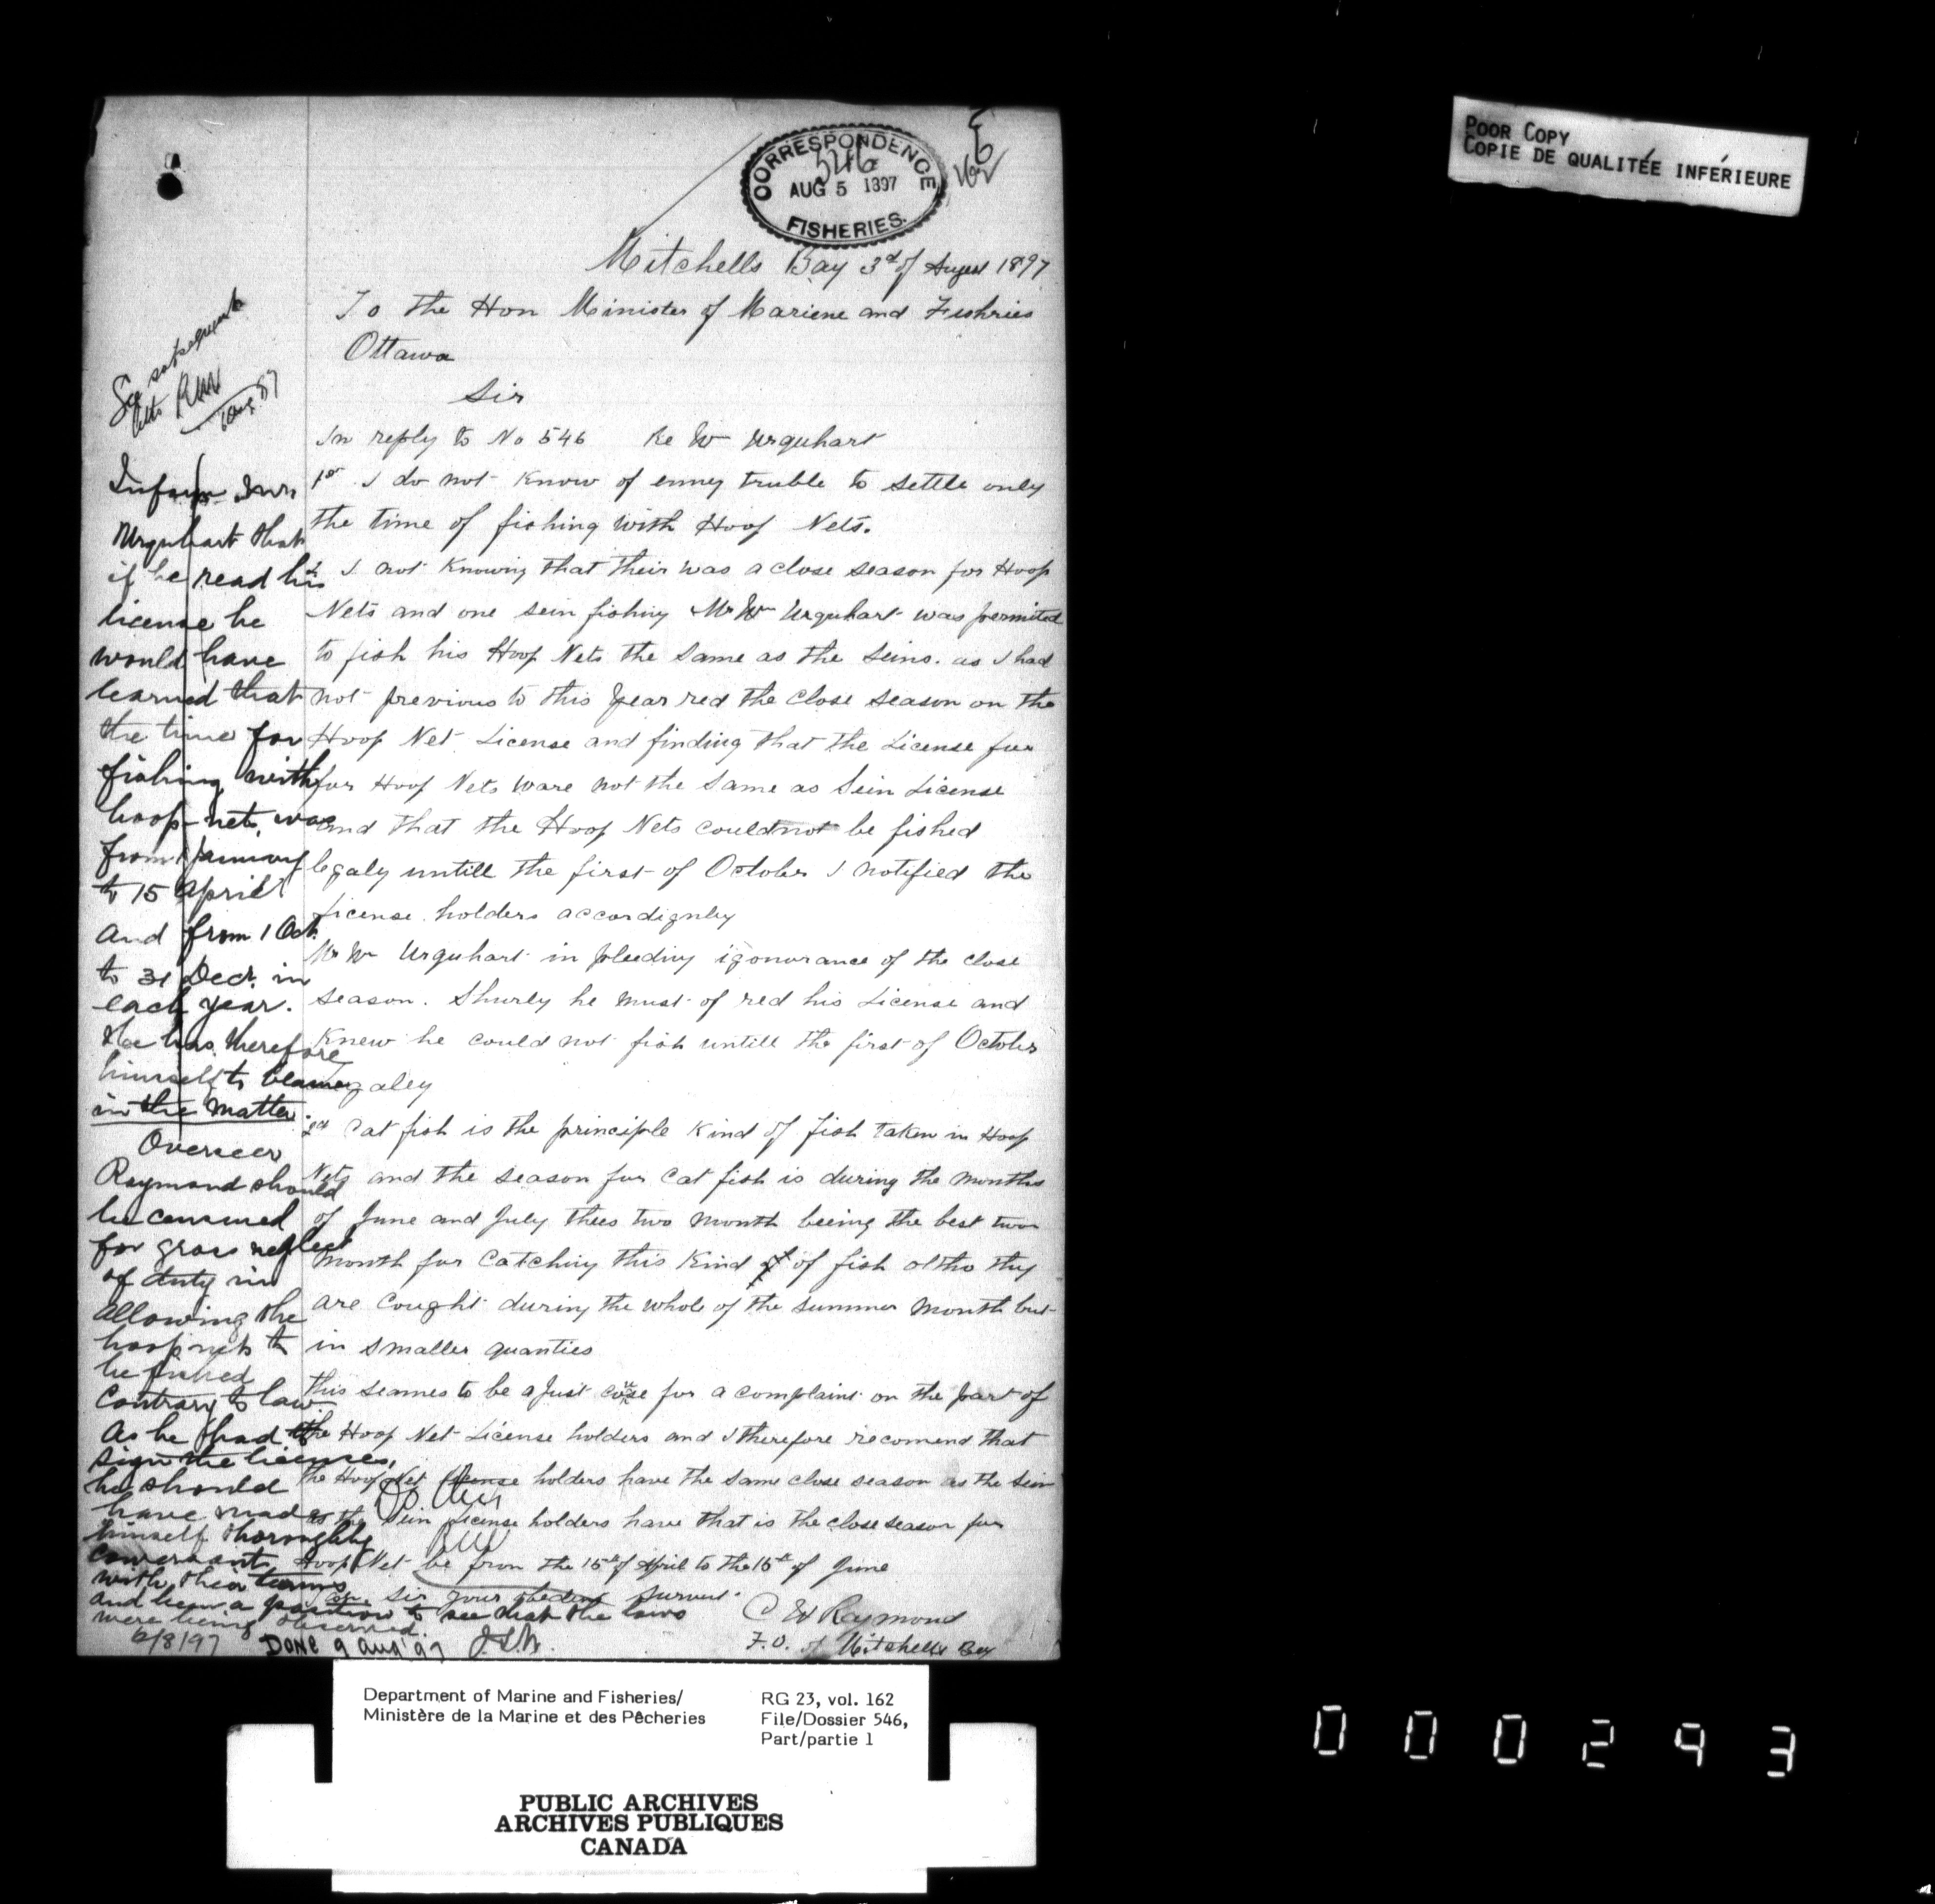 CORRESPONDENCE
546
AUG 5 1897
FISHERIES.
POOR COPY
COPIE DE QUALITÉE INFÉRIEURE
Mitchells Bay 3rd of August 1897
To the Hon Minister of Mariene and Fishries
Ottawa
Sir
In reply to No 546 Re Wm Urquhart
1st I do not know of enney truble to settle only
the time of fishing with Hoop Nets.
I not knowing that their was a close season for Hoop
Nets and one sein fishing Mr Wm Urquhart was permited
to fish his Hoop Nets the same as the seins. as I had
not previous to this year red the close season on the
Hoop Net License and finding that the License fur
fur Hoop Nets ware not the same as Sein License
and that the Hoop Nets could not be fished
legaly untill the first of October I notified the
License holders accordignley
Mr Wm Urquhart in pleeding igonorance of the close
season. Shurly he must of red his License and
knew he could not fish untill the first of October
legaley
2nd Cat fish is the principle kind of fish taken in Hoop
Nets and the season fur Cat fish is during the months
of June and July thees two month beeing the best two
month fur Catching this kind of fish altho they
are cought during the whole of the summer month but
in smaller quanties
this seames to be a just cause for a complaint on the part of
the Hoop Net License holders and I therefore recomend that
the Hoop Net License holders have the same close season as the Sein
as the Sein License holders have that is the close season fur
Hoop Net be from the 15th of April to the 15th of June
Sir your obedent survent
C W Raymond
F.O. of Mitchells Bay
See subsequent
letter RNV
6 Aug 97
Inform Mr
Urquhart that
if he read his
license he
would have
learned that
the time for
fishing with
hoop-nets, was
from 1 January
to 15 April
and from 1 Oct.
to 31 Decr. in
each year.
He has therefore
himself to blame
in the matter
Overseer
Raymond should
be censured
for gross neglect
of duty in
allowing the
hoop nets to
be fished
contrary to law
As he had to
sign the licenses,
he should
have made
himself thoroughly
conversant
with their terms
and been in a position to see that the laws
were being observed.
6/8/97 DONE 9 Aug '97
Department of Marine and Fisheries/
Ministère de la Marine et des Pêcheries
RG 23, vol. 162
File/Dossier 546,
Part/partie 1
PUBLIC ARCHIVES
ARCHIVES PUBLIQUES
CANADA
000293